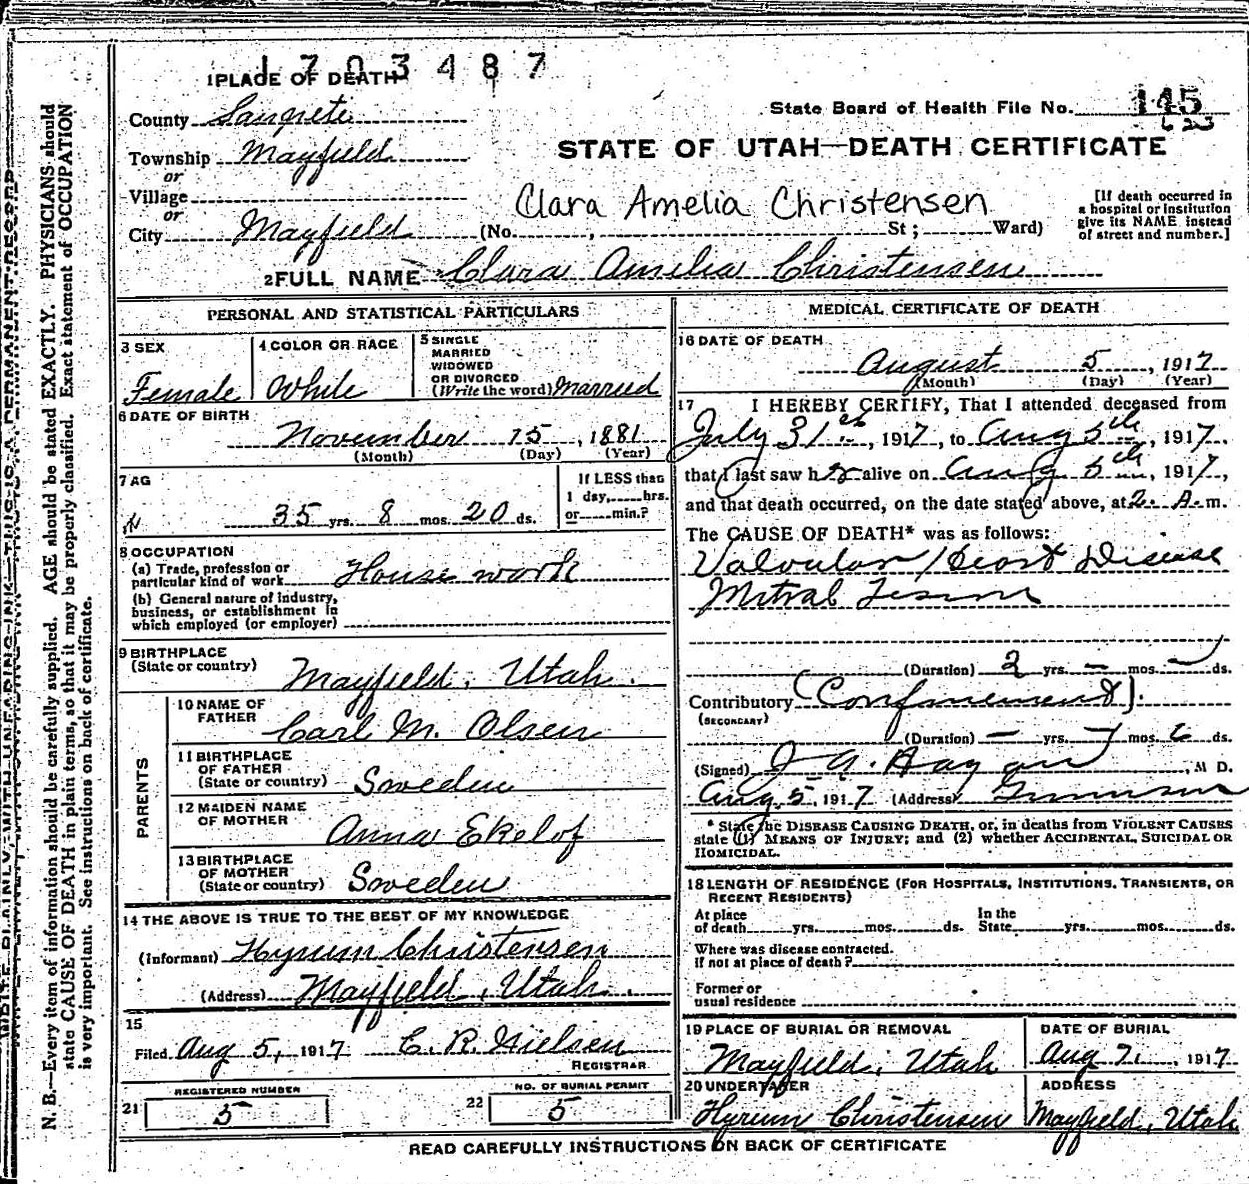 1703487
1 PLACE OF DEATH
County Sanpete
Township Mayfield
or
Village
or
City Mayfield (No. , St ; Ward)
State Board of Health File No. 145
623
STATE OF UTAH—DEATH CERTIFICATE
Clara Amelia Christensen
[If death occurred in
a hospital or institution
give its NAME instead
of street and number.]
2 FULL NAME Clara Amelia Christensen
PERSONAL AND STATISTICAL PARTICULARS
3 SEX
Female
4 COLOR OR RACE
White
5 SINGLE
MARRIED
WIDOWED
OR DIVORCED
(Write the word) Married
6 DATE OF BIRTH
November 15, 1881
(Month) (Day) (Year)
7 AG
35 yrs. 8 mos. 20 ds.
If LESS than
1 day, hrs.
or min.?
8 OCCUPATION
(a) Trade, profession or
particular kind of work House work
(b) General nature of industry,
business, or establishment in
which employed (or employer)
9 BIRTHPLACE
(State or country) Mayfield, Utah.
PARENTS
10 NAME OF
FATHER Carl M. Olsen
11 BIRTHPLACE
OF FATHER
(State or country) Sweden
12 MAIDEN NAME
OF MOTHER Anna Ekelof
13 BIRTHPLACE
OF MOTHER
(State or country) Sweden
14 THE ABOVE IS TRUE TO THE BEST OF MY KNOWLEDGE
(Informant) Hyrum Christensen
(Address) Mayfield, Utah.
15
Filed Aug 5, 1917 C. R. Nielsen
REGISTRAR
REGISTERED NUMBER
21 5
NO. OF BURIAL PERMIT
22 5
MEDICAL CERTIFICATE OF DEATH
16 DATE OF DEATH
August 5, 1917
(Month) (Day) (Year)
17 I HEREBY CERTIFY, That I attended deceased from
July 31st, 1917, to Aug 5th, 1917.
that I last saw her alive on Aug 5th, 1917,
and that death occurred, on the date stated above, at 2 A. m.
The CAUSE OF DEATH* was as follows:
Valvular Heart Disease
Mitral Lesion
(Duration) 2 yrs. — mos. — ds.
Contributory (Confinement).
(SECONDARY)
(Duration) — yrs. — mos. 6 ds.
(Signed) J A. Hagan, M D.
Aug, 5, 1917 (Address) Gunnison
* State the DISEASE CAUSING DEATH, or, in deaths from VIOLENT CAUSES
state (1) MEANS OF INJURY; and (2) whether ACCIDENTAL, SUICIDAL OR
HOMICIDAL.
18 LENGTH OF RESIDENCE (FOR HOSPITALS, INSTITUTIONS, TRANSIENTS, OR
RECENT RESIDENTS)
At place
of death yrs. mos. ds.
In the
State yrs. mos. ds.
Where was disease contracted.
If not at place of death?
Former or
usual residence
19 PLACE OF BURIAL OR REMOVAL
Mayfield, Utah
DATE OF BURIAL
Aug 7, 1917
20 UNDERTAKER
Hyrum Christensen
ADDRESS
Mayfield, Utah
READ CAREFULLY INSTRUCTIONS ON BACK OF CERTIFICATE
WRITE PLAINLY, WITH UNFADING INK—THIS IS A PERMANENT RECORD
N. B.—Every item of information should be carefully supplied. AGE should be stated EXACTLY. PHYSICIANS should
state CAUSE OF DEATH in plain terms, so that it may be properly classified. Exact statement of OCCUPATION
is very important. See instructions on back of certificate.